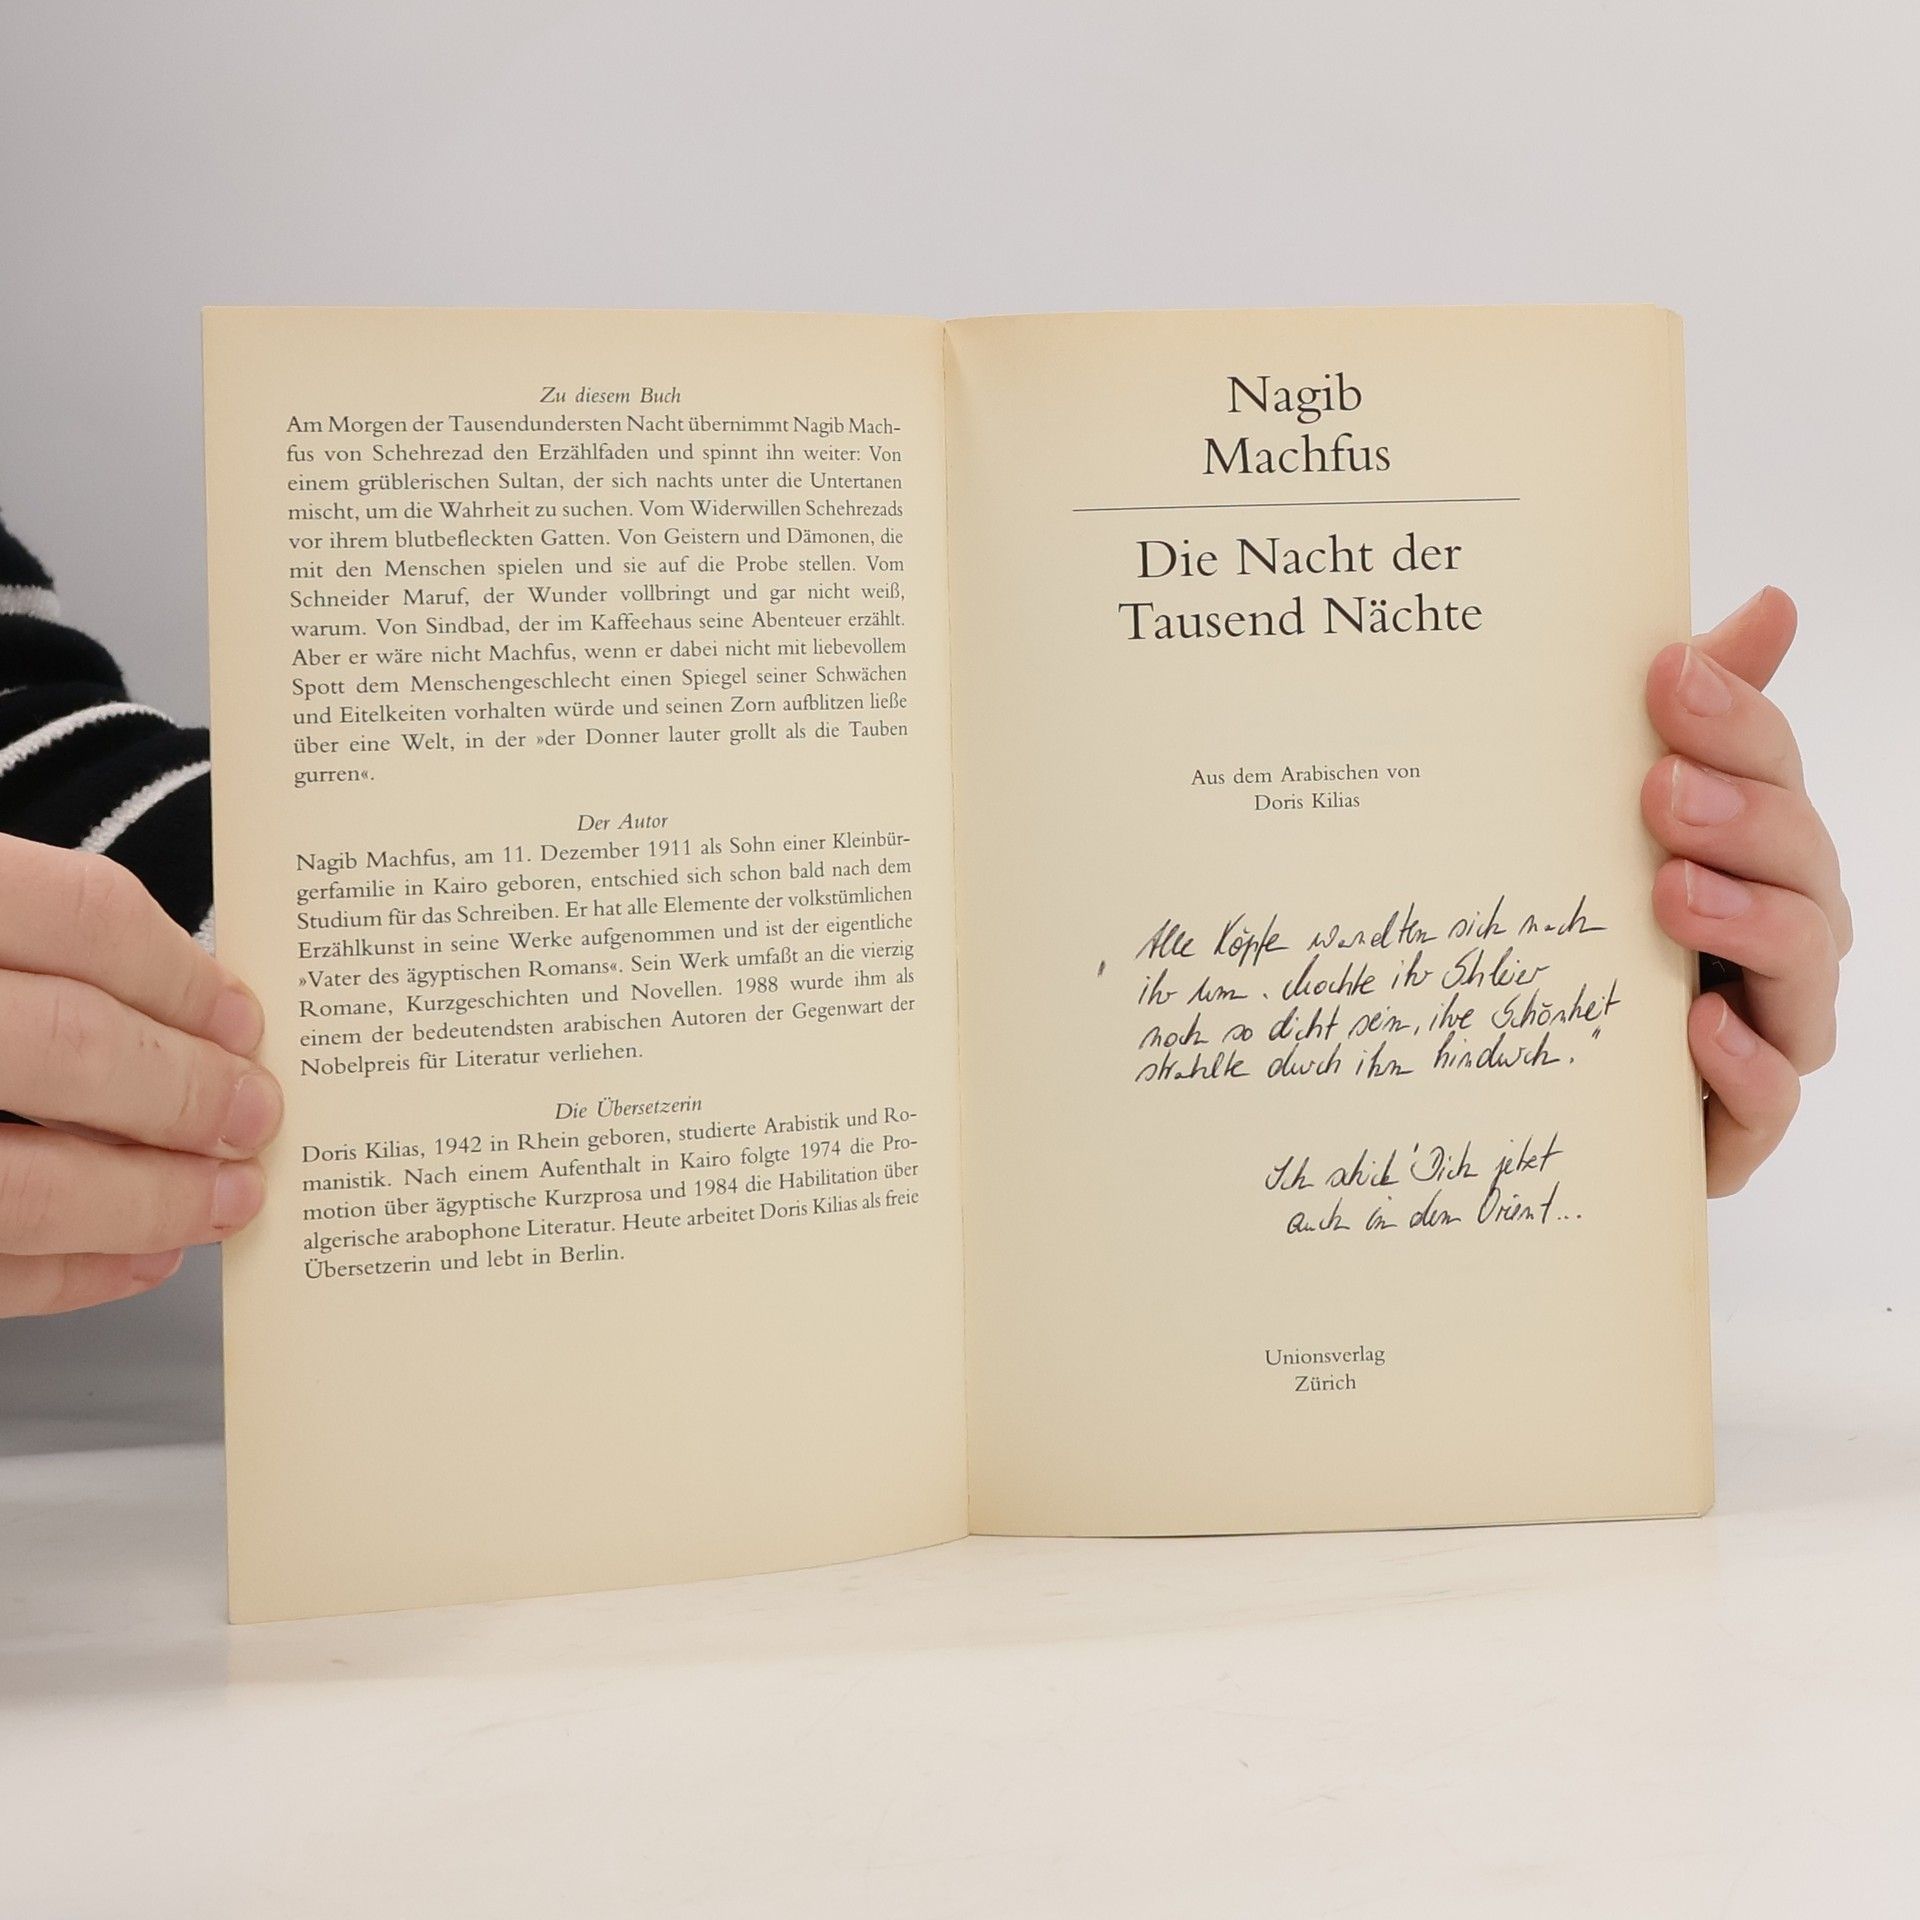 Zu diesem Buch
Am Morgen der Tausendundersten Nacht übernimmt Nagib Mach-
fus von Schehrezad den Erzählfaden und spinnt ihn weiter: Von
einem grüblerischen Sultan, der sich nachts unter die Untertanen
mischt, um die Wahrheit zu suchen. Vom Widerwillen Schehrezads
vor ihrem blutbefleckten Gatten. Von Geistern und Dämonen, die
mit den Menschen spielen und sie auf die Probe stellen. Vom
Schneider Maruf, der Wunder vollbringt und gar nicht weiß,
warum. Von Sindbad, der im Kaffeehaus seine Abenteuer erzählt.
Aber er wäre nicht Machfus, wenn er dabei nicht mit liebevollem
Spott dem Menschengeschlecht einen Spiegel seiner Schwächen
und Eitelkeiten vorhalten würde und seinen Zorn aufblitzen ließe
über eine Welt, in der »der Donner lauter grollt als die Tauben
gurren«.
Der Autor
Nagib Machfus, am 11. Dezember 1911 als Sohn einer Kleinbür-
gerfamilie in Kairo geboren, entschied sich schon bald nach dem
Studium für das Schreiben. Er hat alle Elemente der volkstümlichen
Erzählkunst in seine Werke aufgenommen und ist der eigentliche
»Vater des ägyptischen Romans«. Sein Werk umfaßt an die vierzig
Romane, Kurzgeschichten und Novellen. 1988 wurde ihm als
einem der bedeutendsten arabischen Autoren der Gegenwart der
Nobelpreis für Literatur verliehen.
Die Übersetzerin
Doris Kilias, 1942 in Rhein geboren, studierte Arabistik und Ro-
manistik. Nach einem Aufenthalt in Kairo folgte 1974 die Pro-
motion über ägyptische Kurzprosa und 1984 die Habilitation über
algerische arabophone Literatur. Heute arbeitet Doris Kilias als freie
Übersetzerin und lebt in Berlin.
Nagib
Machfus
Die Nacht der
Tausend Nächte
Aus dem Arabischen von
Doris Kilias
" Alle Köpfe wandten sich nach
ihr um. Mochte ihr Shleier
noch so dicht sein, ihre Schönheit
strahlte durch ihn hindurch."
Ich schick' Dich jetzt
auch in den Orient...
Unionsverlag
Zürich